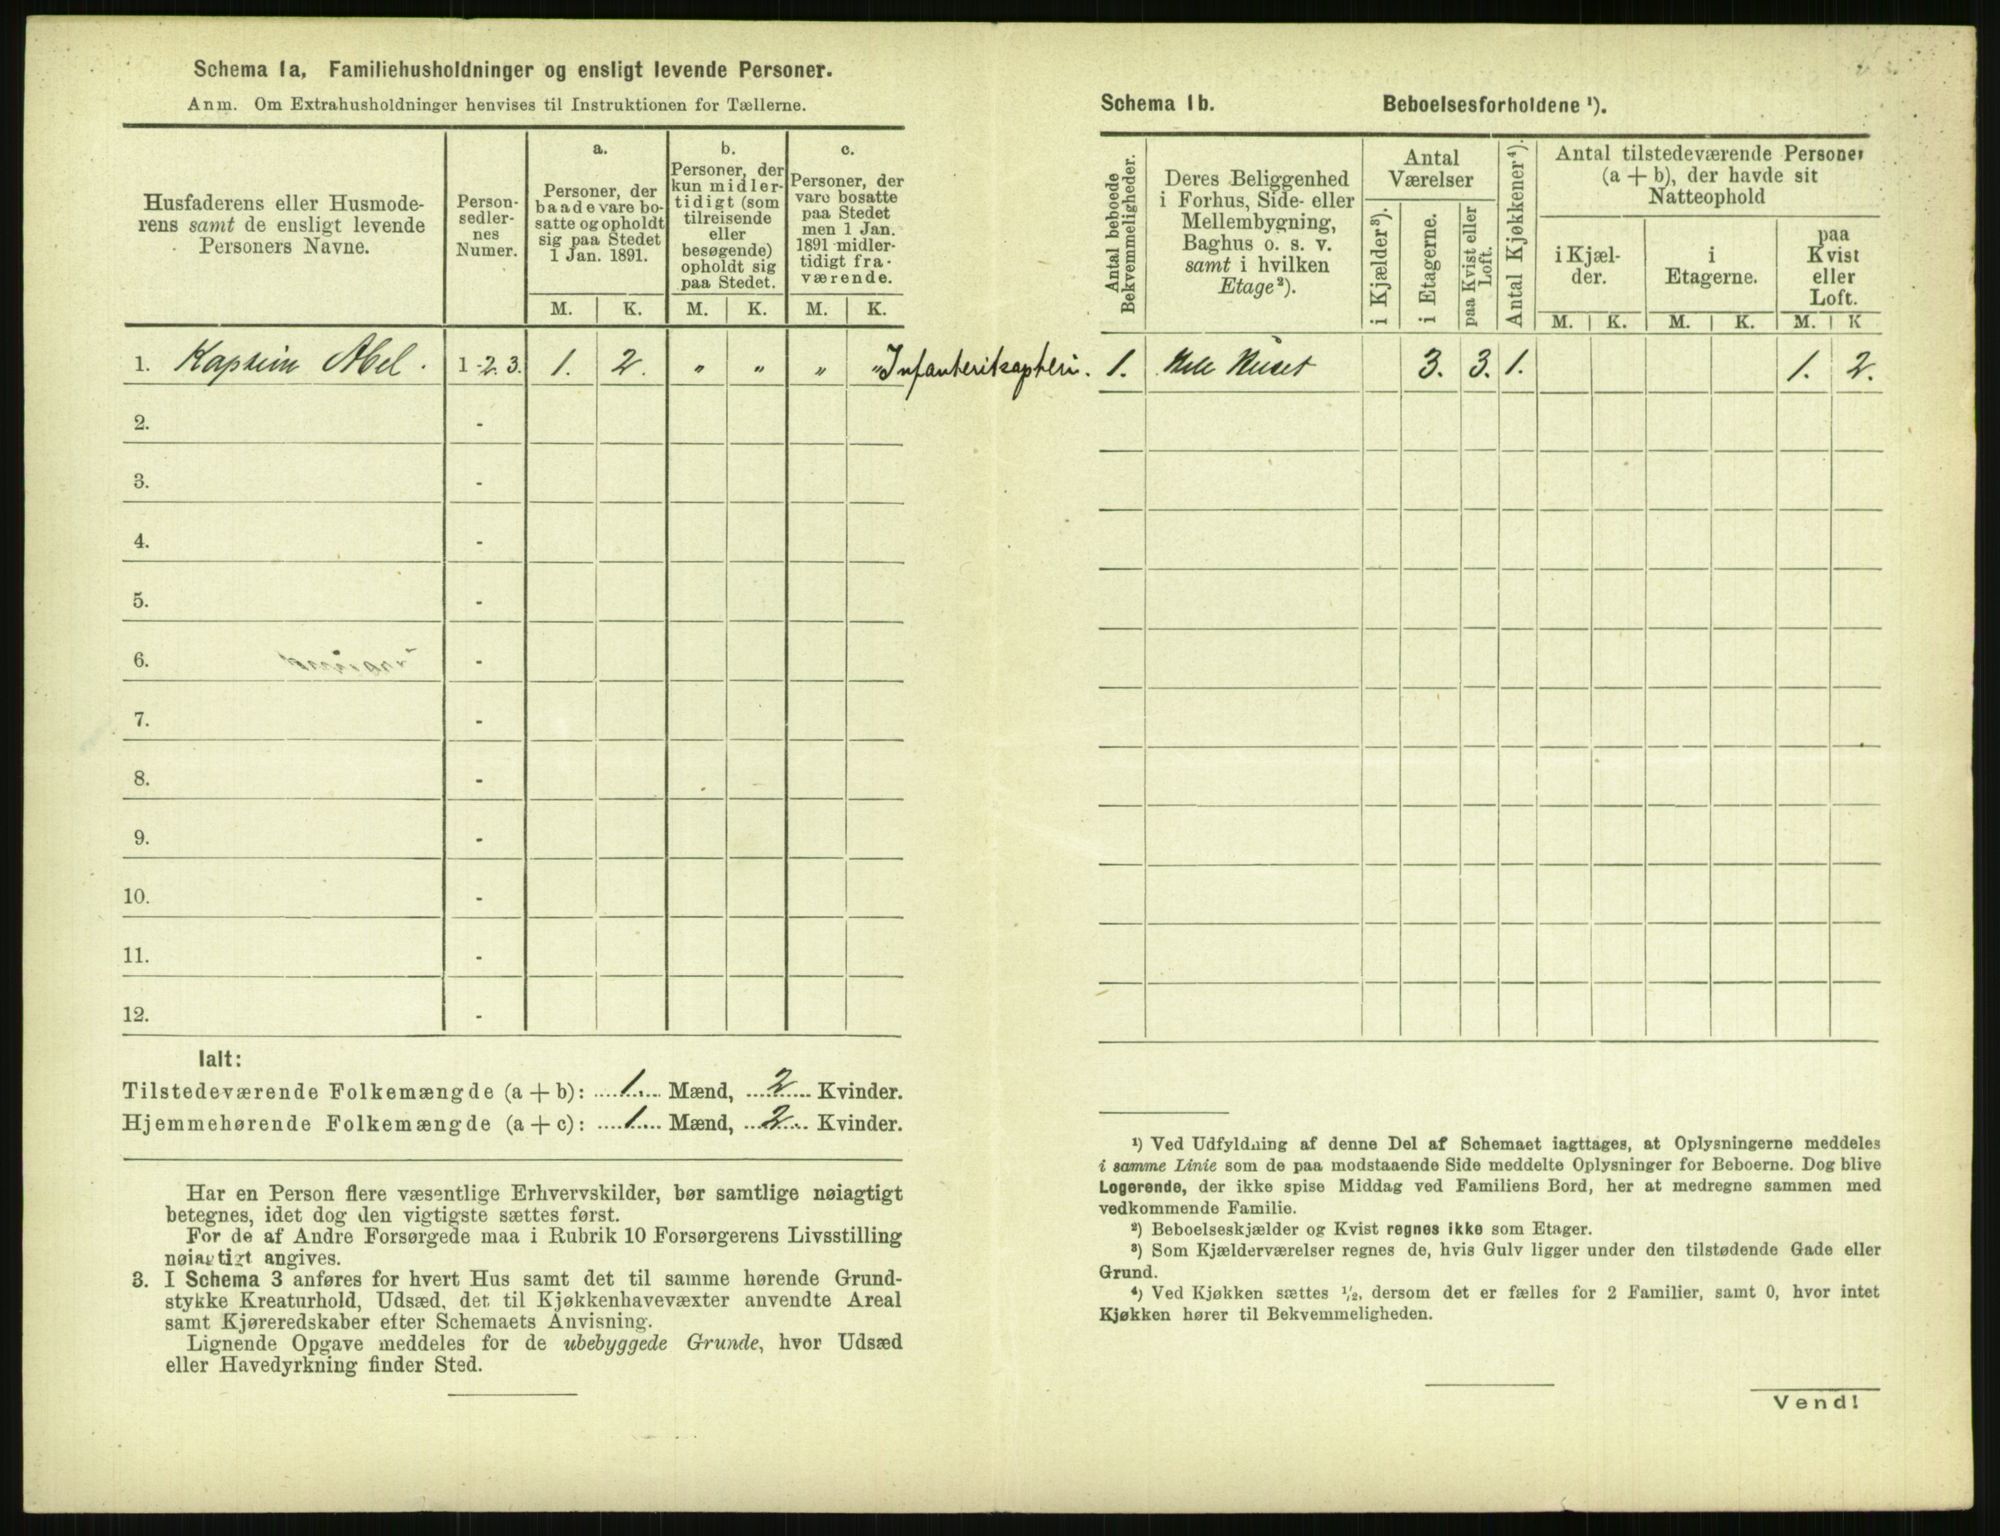 Schema 1a, Familiehusholdninger og ensligt levende Personer.
Anm. Om Extrahusholdninger henvises til Instruktionen for Tællerne.
Husfaderens eller Husmode-
rens samt de ensligt levende
Personers Navne.
Person-
sedler-
nes
Numer.
a.
Personer, der
baade vare bo-
satte og opholdt
sig paa Stedet
1 Jan. 1891.
b.
Personer, der
kun midler-
tidigt (som
tilreisende
eller
besøgende)
opholdt sig
paa Stedet.
c.
Personer, der
vare bosatte
paa Stedet
men 1 Jan.
1891 midler-
tidigt fra-
værende.
M. K. M. K. M. K.
1. Kaptein Abel. 1-2.3. 1. 2. " " " " Infanterikaptein.
2. -
3. -
4. -
5. -
6. -
7. -
8. -
9. -
10. -
11. -
12. -
Ialt:
Tilstedeværende Folkemængde (a + b): 1. Mænd, 2 Kvinder.
Hjemmehørende Folkemængde (a + c): 1. Mænd, 2. Kvinder.
Har en Person flere væsentlige Erhvervskilder, bør samtlige nøiagtigt
betegnes, idet dog den vigtigste sættes først.
For de af Andre Forsørgede maa i Rubrik 10 Forsørgerens Livsstilling
nøiagtigt angives.
3. I Schema 3 anføres for hvert Hus samt det til samme hørende Grund-
stykke Kreaturhold, Udsæd, det til Kjøkkenhavevæxter anvendte Areal
samt Kjøreredskaber efter Schemaets Anvisning.
Lignende Opgave meddeles for de ubebyggede Grunde, hvor Udsæd
eller Havedyrkning finder Sted.
Schema 1b. Beboelsesforholdene ¹).
Antal beboede
Bekvemmeligheder.
Deres Beliggenhed
i Forhus, Side- eller
Mellembygning,
Baghus o. s. v.
samt i hvilken
Etage²).
Antal
Værelser
i Kjælder³).
i Etagerne.
paa Kvist eller
Loft.
Antal Kjøkkener⁴).
Antal tilstedeværende Personer
(a + b), der havde sit
Natteophold
i Kjæl-
der.
i
Etagerne.
paa
Kvist
eller
Loft.
M. K. M. K. M. K
1. Hele Huset 3. 3. 1. 1. 2.
¹) Ved Udfyldning af denne Del af Schemaet iagttages, at Oplysningerne meddeles
i samme Linie som de paa modstaaende Side meddelte Oplysninger for Beboerne. Dog blive
Logerende, der ikke spise Middag ved Familiens Bord, her at medregne sammen med
vedkommende Familie.
²) Beboelseskjælder og Kvist regnes ikke som Etager.
³) Som Kjælderværelser regnes de, hvis Gulv ligger under den tilstødende Gade eller
Grund.
⁴) Ved Kjøkken sættes ½, dersom det er fælles for 2 Familier, samt 0, hvor intet
Kjøkken hører til Bekvemmeligheden.
Vend!